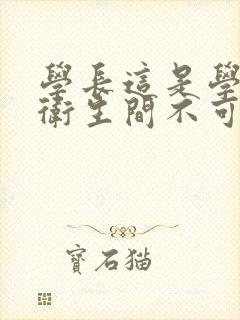 學長這是學
衛生間不可
寶石猫